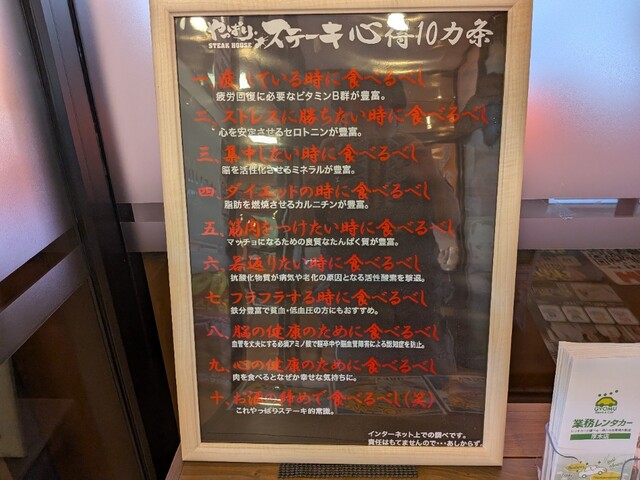 やっぱりステーキ 心得10カ条
STEAK HOUSE
一、疲れている時に食べるべし
疲労回復に必要なビタミンB群が豊富。
二、ストレスに勝ちたい時に食べるべし
心を安定させるセロトニンが豊富。
三、集中したい時に食べるべし
脳を活性化させるミネラルが豊富。
四、ダイエットの時に食べるべし
脂肪を燃焼させるカルニチンが豊富。
五、筋肉をつけたい時に食べるべし
マッチョになるための良質なたんぱく質が豊富。
六、若返りたい時に食べるべし
抗酸化物質が病気や老化の原因となる活性酸素を撃退。
七、フラフラする時に食べるべし
鉄分豊富で貧血・低血圧の方にもおすすめ。
八、脳の健康のために食べるべし
血管を丈夫にする必須アミノ酸で脳卒中や脳血管障害による認知症を防止。
九、心の健康のために食べるべし
肉を食べるとなぜか幸せな気持ちに。
十、お酒の締めで食べるべし(笑)
これやっぱりステーキ的常識。
インターネット上での調べです。
責任はもてませんので・・・あしからず。
GYOMU
業務レンタカー